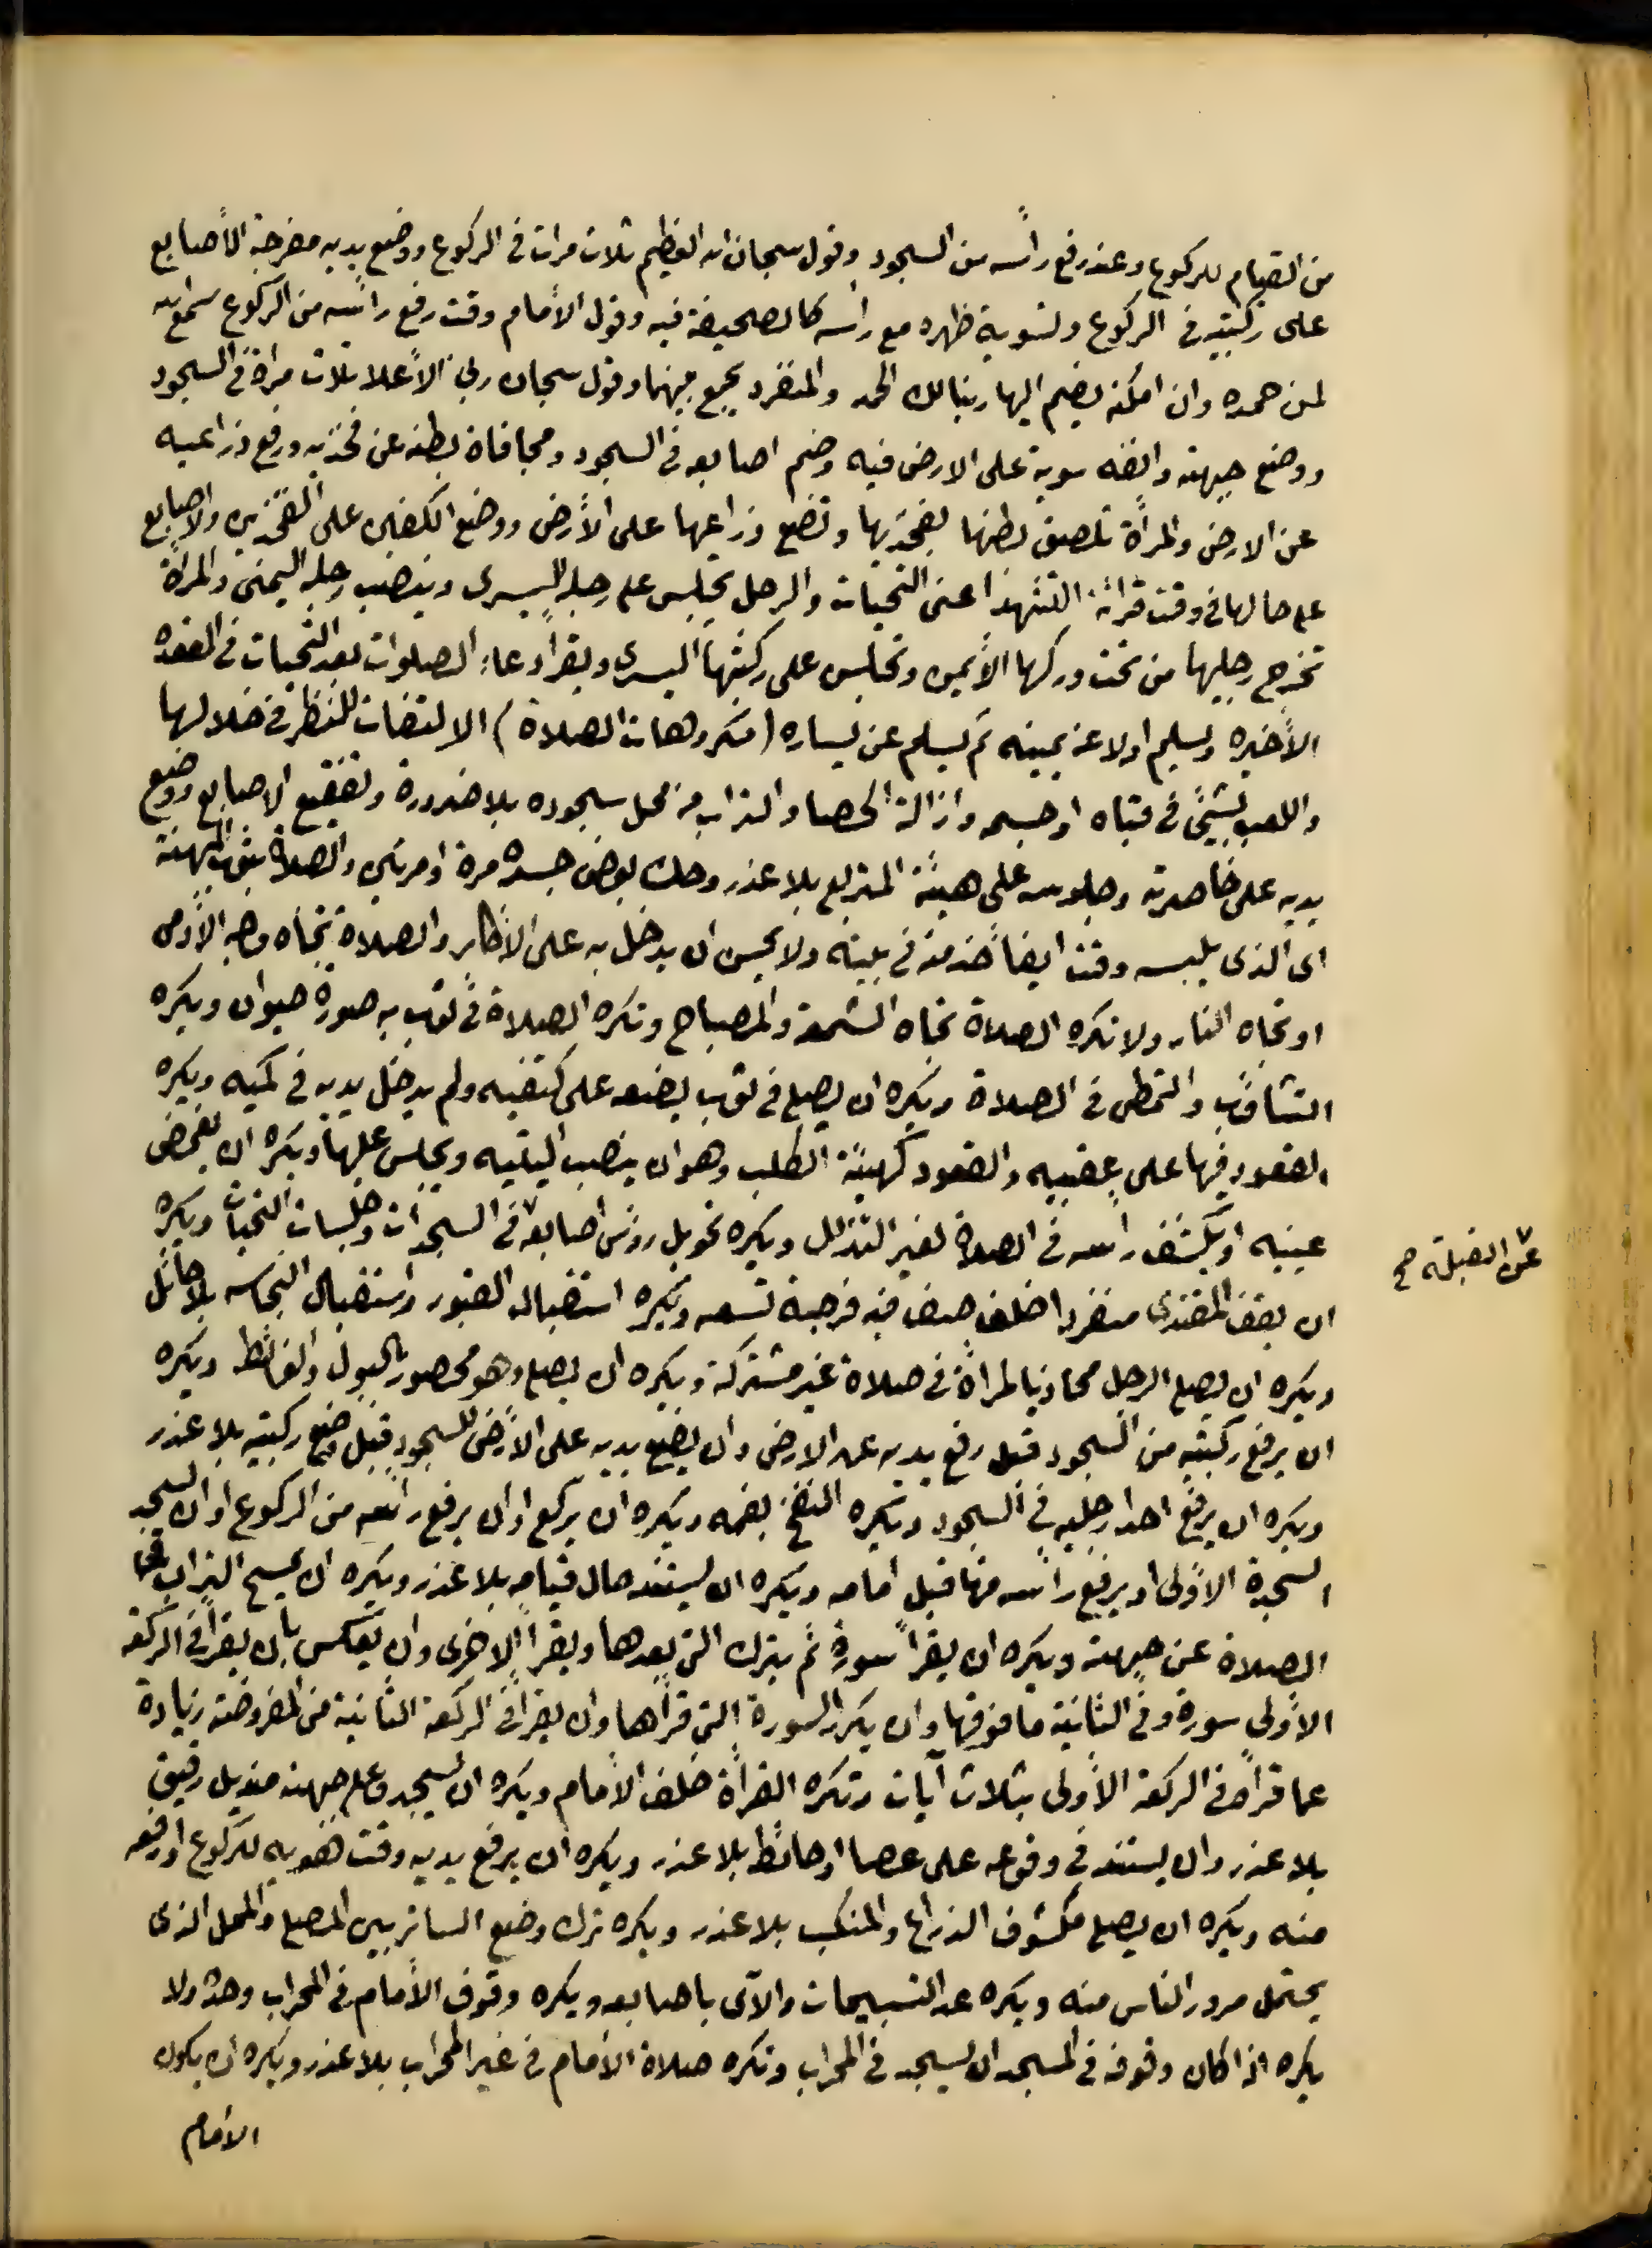 من القيام للركوع وعند رفع رأسه من السجود وقول سبحان الله العظيم ثلاث مرات في الركوع ووضع يديه مفرجة الأصابع
على ركبتيه في الركوع وتسوية ظهره مع رأسه كالصحيفة فيه وقول الأمام وقت رفع رأسه من الركوع سمع الله
لمن حمده وان امكنه يضم اليها ربنا لك الحمد والمنفرد يجمع بينهما وقول سبحان ربي الأعلا ثلاث مرات في السجود
ووضع جبهته وانفه سوية على الارض فيه وضم اصابعه في السجود ومجافاة بطنه عن فخذيه ورفع ذراعيه
عن الارض والمرأة تلصق بطنها بفخذيها وتضع ذراعيها على الأرض ووضع الكفين على الفخذين والاصابع
على حالها في وقت قرائة التشهد اعنى التحيات والرجل يجلس على رجله اليسرى وينصب رجله اليمنى والمرأة
تخرج رجليها من تحت وركها الأيمن وتجلس على ركبتها اليسرى ويقرأ دعاء الصلوات بعد التحيات في القعدة
الأخيره ويسلم اولا عن يمينه ثم يسلم عن يساره (مكروهات الصلاة) الالتفات للنظر في خلالها
واللعب بشيئ في قباه او جسمه وازالة الحصا والتراب من محل سجوده بلا ضرورة وتفقيع الاصابع ووضع
يديه على خاصرته وجلوسه على هيئة المتربع بلا عذر وحك بعض جسده مرة او مرتين والصلاة بثوب المهنة
اى الذى يلبسه وقت ايفا خدمته في بيته ولا يحسن ان يدخل به على الاكابر والصلاة تجاه وجه الأدمى
او تجاه النار ولا تكره الصلاة تجاه الشمعة والمصباح وتكره الصلاة في ثوب به صورة حيوان ويكره
التثاؤب والتمطى في الصلاة ويكره ان يصلى في ثوب يضعه على كتفيه ولم يدخل يديه في كميه ويكره
القعود فيها على عقبيه والقعود كهيئة الكلب وهو ان ينصب اليتيه ويجلس عليها ويكره ان يغمض
عينيه او يكشف رأسه في الصلاة لغير التذلل ويكره تحويل رؤس اصابعه في السجدات وجلسات التحيات ويكره
عن القبلة صح
ان يقف المقتدى منفردا خلف صف فيه فرجة تسعه ويكره استقبال القبور واستقبال النجاسه بلا حائل
ويكره ان يصلى الرجل محاذيا لمرأة في صلاة غير مشتركة ويكره ان يصلى وهو محصور بالبول والغائط ويكره
ان يرفع ركبتيه من السجود قبل رفع يديه عن الارض وان يضع يديه على الأرض للسجود قبل وضع ركبتيه بلا عذر
ويكره ان يرفع احدا رجليه في السجود وتكره النفخ بفمه ويكره ان يركع او ان يرفع رأسه من الركوع او ان يسجد
السجدة الاولى او يرفع رأسه منها قبل امامه ويكره ان يستند حال قيامه بلا عذر ويكره ان يمسح التراب في
الصلاة عن جبهته ويكره ان يقرأ سورة ثم يترك التى بعدها ويقرأ الاخرى وان يعكس بان يقرأ في الركعة
الأولى سورة وفي الثانية ما فوقها وان يكرر السورة التى قرأها وان يقرأ في الركعة الثانية من المفروضة زيادة
عما قرأ في الركعة الأولى بثلاث آيات وتكره القرأة خلف الأمام ويكره ان يسجد وعلى جبهته منديل رقيق
بلا عذر وان يستند في وقوعه على عصا او حائط بلا عذر ويكره ان يرفع يديه وقت هويه للركوع او رفعه
منه ويكره ان يصلى مكشوف الذراع والمنكب بلا عذر ويكره ترك وضع الساتر بين المصلى والمحل الذى
يحتمل مرور الناس منه ويكره عد التسبيحات والآى باصابعه ويكره وقوف الأمام في المحراب وحده ولا
يكره اذا كان وقوفه في المسجد ان يسجد في المحراب وتكره صلاة الامام في غير المحراب بلا عذر ويكره ان يكون
الامام